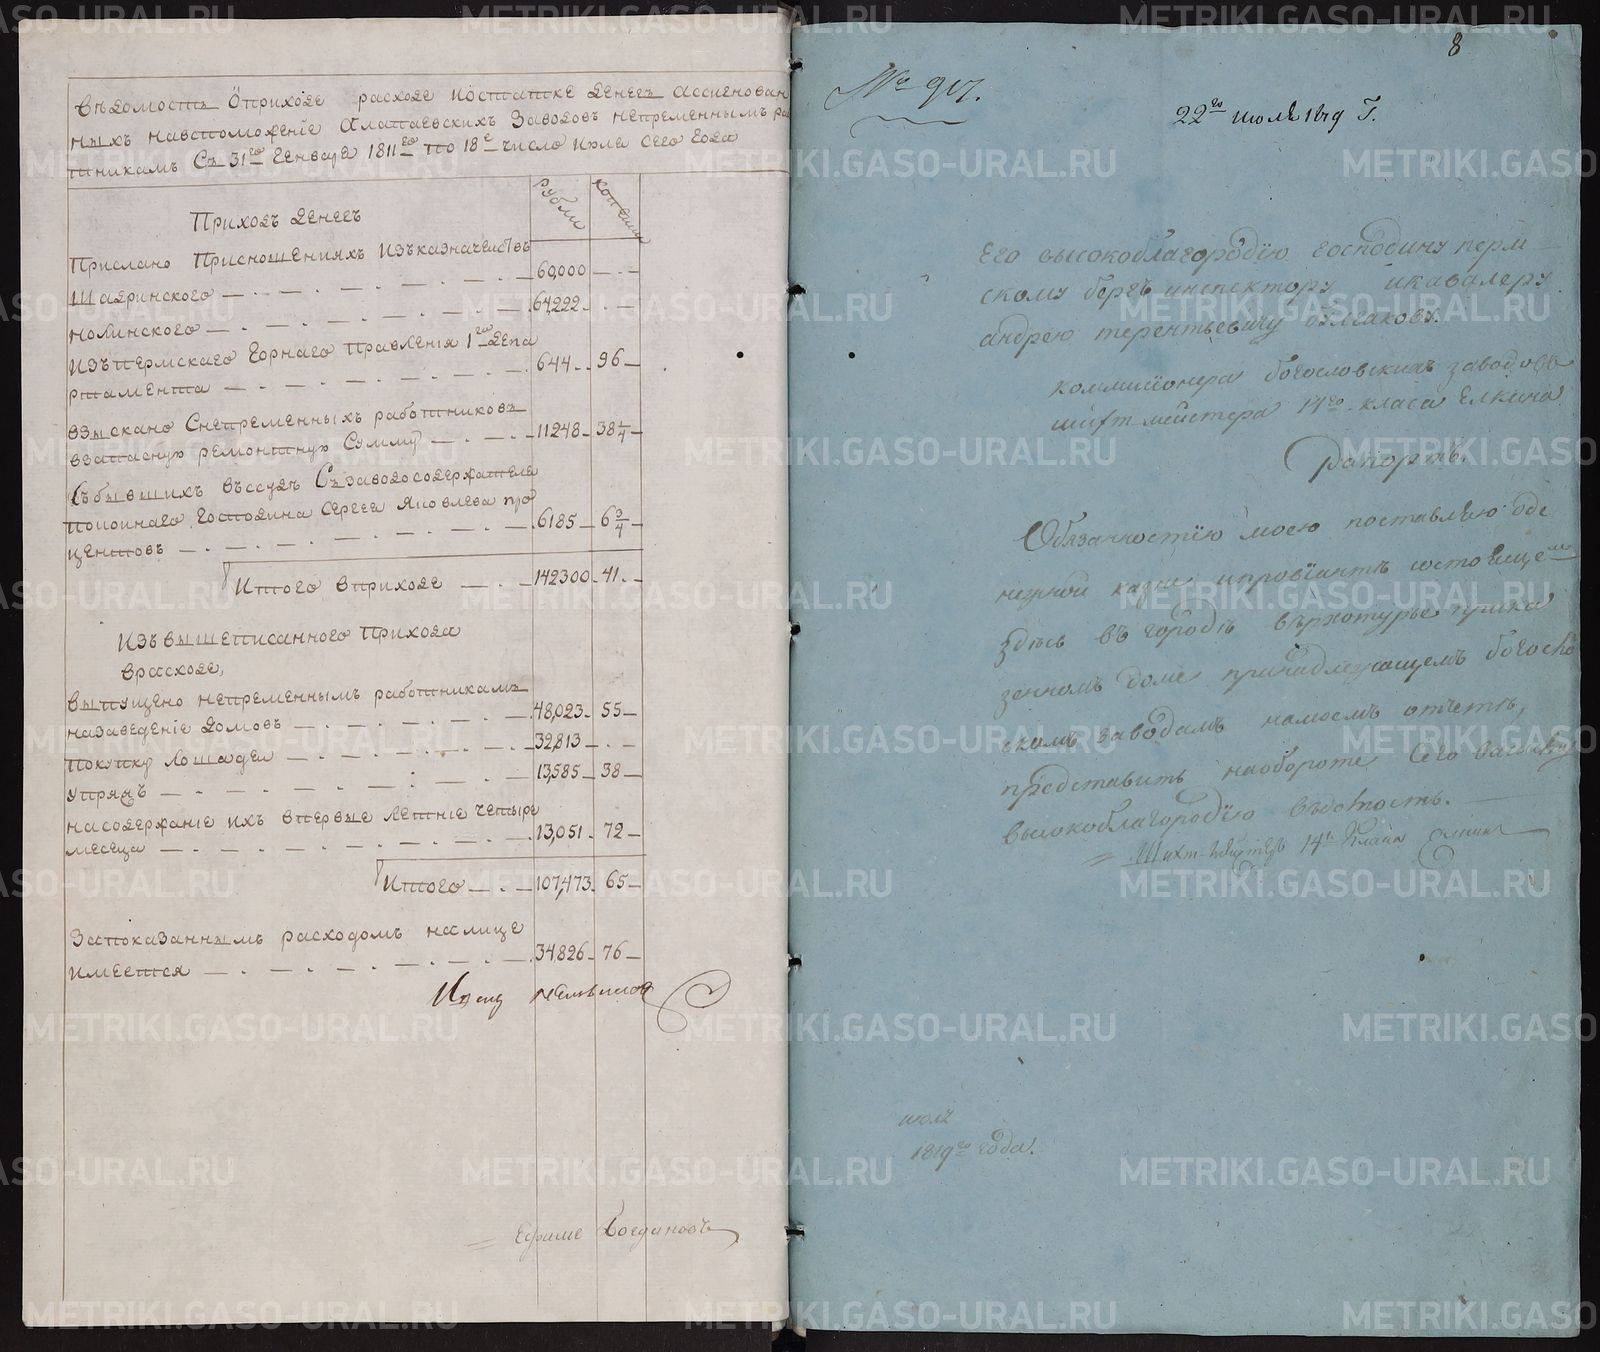 Вѣдомость Оприходе расходе иостатке денегъ ассигнован
ныхъ навспоможенїе Алапаевскихъ Заводовъ непременнымъ ра
тникамъ Съ 31го Генваря 1811го по 18е число июля сего Года
Рубли
копейки
Приходъ денегъ
Прислано Присношенияхъ Изъказначействъ
Шадринского 60,000
нолинского 64,222
Изъпермскаго Горнаго правленїя 1го Депа
ртамента 644 96
взыскано Снепременныхъ работниковъ
взапасную ремонтную Сумму 11248 38 1/4
Събывшихъ въссудѣ Съзаводосодержателя
покоинаго Господина Сергея Яковлева про
центовъ 6185 6 3/4
Итого вприходе 142300 41
Изъвышеписанного прихода
врасходе,
выпущено непременнымъ работникамъ
назаведенїе домовъ 48,023 55
покупку лошадеи 32,813
упряжъ 13,585 38
насодержанїе ихъ впервые летнїе четыре
месеца 13,051 72
Итого 107,473 65
Запоказаннымъ расходомъ налице
имеется 34826 76
Ефиме Богдановъ
8
№ 917.
22го июля 1819 Г.
Его высокоблагородїю господину перм
скому бергъ инспектору икавалеру
андрею терентьевичу булгакову.
коммисїонера богословскихъ заводовъ
шихтмейстера 14го класа Елкина
Рапортъ.
Обязанностїю моею поставляю оде
нежной казне ипровїантѣ состоящем
здѣсь въ городѣ верхотурье прика
зенномъ доме принадлежащемъ богосло
скимъ заводамъ намоемъ отчетѣ,
представить наобороте сего вашему
высокоблагородїю вѣдомость.
Шихтмейстеръ 14го Класа Елкинъ
июля
1819го года.